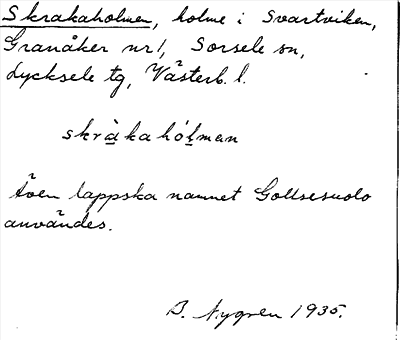 Skrakaholmen, holme i Svartviken,
Granåker nr 1, Sorsele sn,
Lycksele tg, Västerb. l.
skràkahólman
Även lappska namnet Gollsesuolo
användes.
B. Nygren 1935.